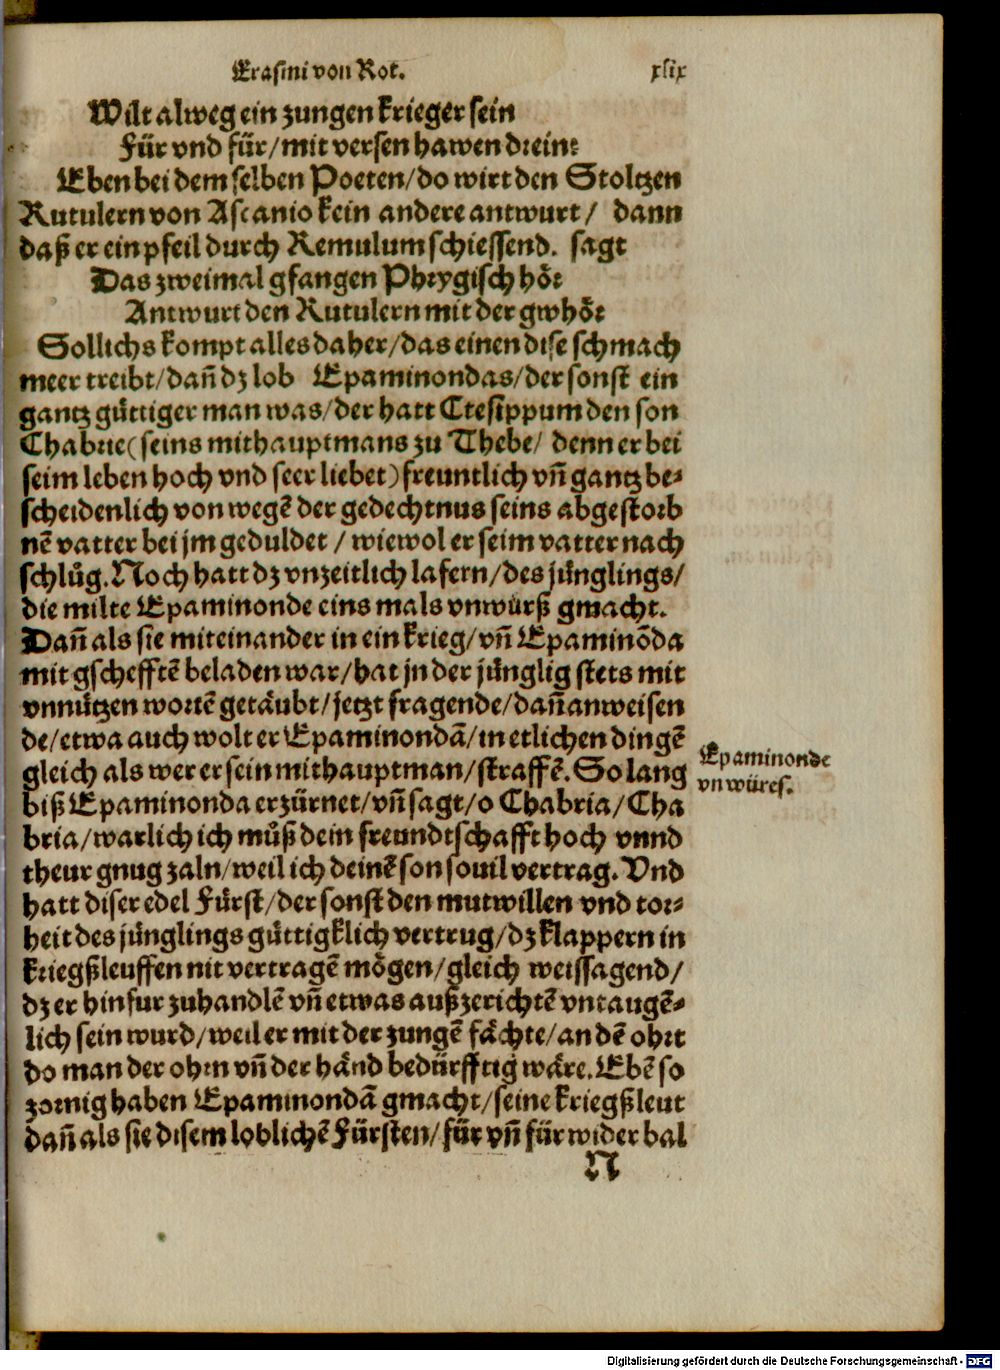 Erasmi von Rot. xlix
Wilt alweg ein zungen krieger sein
Für vnd für/mit versen hawen drein:
Eben bei dem selben Poeten/do wirt den Stoltzen
Rutulern von Ascanio kein andere antwurt/ dann
daß er ein pfeil durch Remulum schiessend. sagt
Das zweimal gfangen Phrygisch hör
Antwurt den Rutulern mit der gwhör
Sollichs kompt alles daher/das einen dise schmach
meer treibt/dañ dz lob Epaminondas/der sonst ein
gantz gůttiger man was/der hatt Ctesippum den son
Chabrie(seins mithauptmans zu Thebe/ denn er bei
seim leben hoch vnd seer liebet)freuntlich vñ gantz be⸗
scheidenlich von wegē der gedechtnus seins abgestorb
nē vatter bei jm geduldet / wiewol er seim vatter nach
schlůg. Noch hatt dz vnzeitlich lafern/des jünglings/
die milte Epaminonde eins mals vnwürß gmacht.
Dañ als sie miteinander in ein krieg/vñ Epaminōda
mit gschefftē beladen war/hat jn der jünglig stets mit
vnnützen wortē getäubt/jetzt fragende/dañ anweisen
de/etwa auch wolt er Epaminondā/in etlichen dingē
gleich als wer er sein mithauptman/straffē. So lang
biß Epaminonda erzürnet/vñ sagt/o Chabria/Cha
bria/warlich ich můß dein freundtschafft hoch vnnd
theur gnug zaln/weil ich deinē son souil vertrag. Vnd
hatt diser edel Fürst/der sonst den mutwillen vnd tor⸗
heit des jünglings güttigklich vertrug/dz klappern in
kriegßleuffen nit vertragē mögen/gleich weissagend/
dz er hinfur zuhandlē vñ etwas außzerichtē vntaugē⸗
lich sein wurd/weil er mit der zungē fächte/an dē ohrt
do man der ohrn vñ der händ bedürfftig wäre. Ebē so
zornig haben Epaminondā gmacht/seine kriegßleut
dañ als sie disem loblichē Fürsten/für vñ für wider bal
N
Epaminonde
vnwüres.
Digitalisierung gefördert durch die Deutsche Forschungsgemeinschaft - DFG